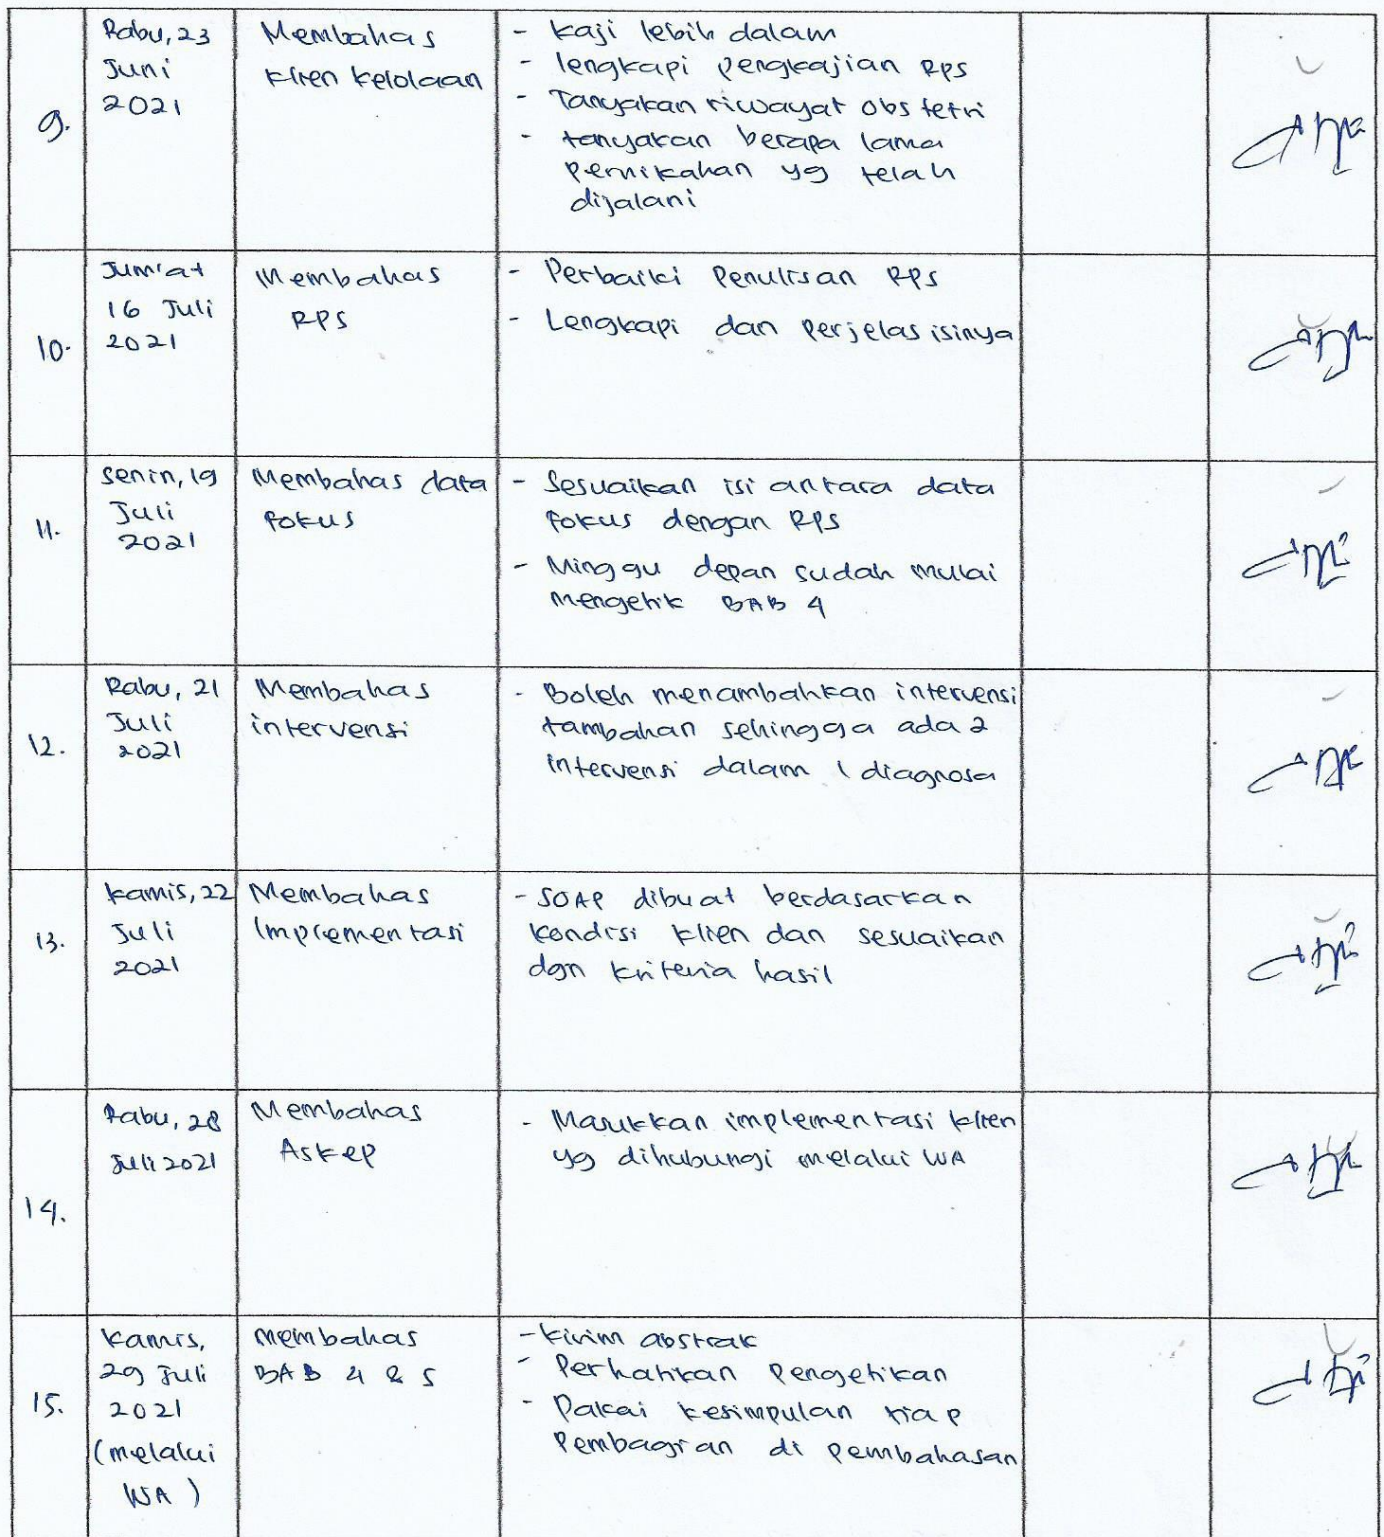 9.
Rabu, 23
Juni
2021
Membahas
klien kelolaan
- kaji lebih dalam
- lengkapi pengkajian RPS
- Tanyakan riwayat obstetri
- tanyakan berapa lama
pernikahan yg telah
dijalani
10.
Jum'at
16 Juli
2021
Membahas
RPS
- Perbaiki Penulisan RPS
- Lengkapi dan perjelas isinya
11.
Senin, 19
Juli
2021
Membahas data
fokus
- Sesuaikan isi antara data
fokus dengan RPS
- Minggu depan sudah mulai
mengetik BAB 4
12.
Rabu, 21
Juli
2021
Membahas
intervensi
- Boleh menambahkan intervensi
tambahan sehingga ada 2
intervensi dalam 1 diagnosa
13.
Kamis, 22
Juli
2021
Membahas
Implementasi
- SOAP dibuat berdasarkan
kondisi klien dan sesuaikan
dgn kriteria hasil
14.
Rabu, 28
Juli 2021
Membahas
Askep
- Masukkan implementasi klien
yg dihubungi melalui WA
15.
Kamis,
29 Juli
2021
(melalui
WA)
membahas
BAB 4 & 5
- Kirim abstrak
- Perhatikan Pengetikan
- Pakai kesimpulan tiap
Pembagian di pembahasan